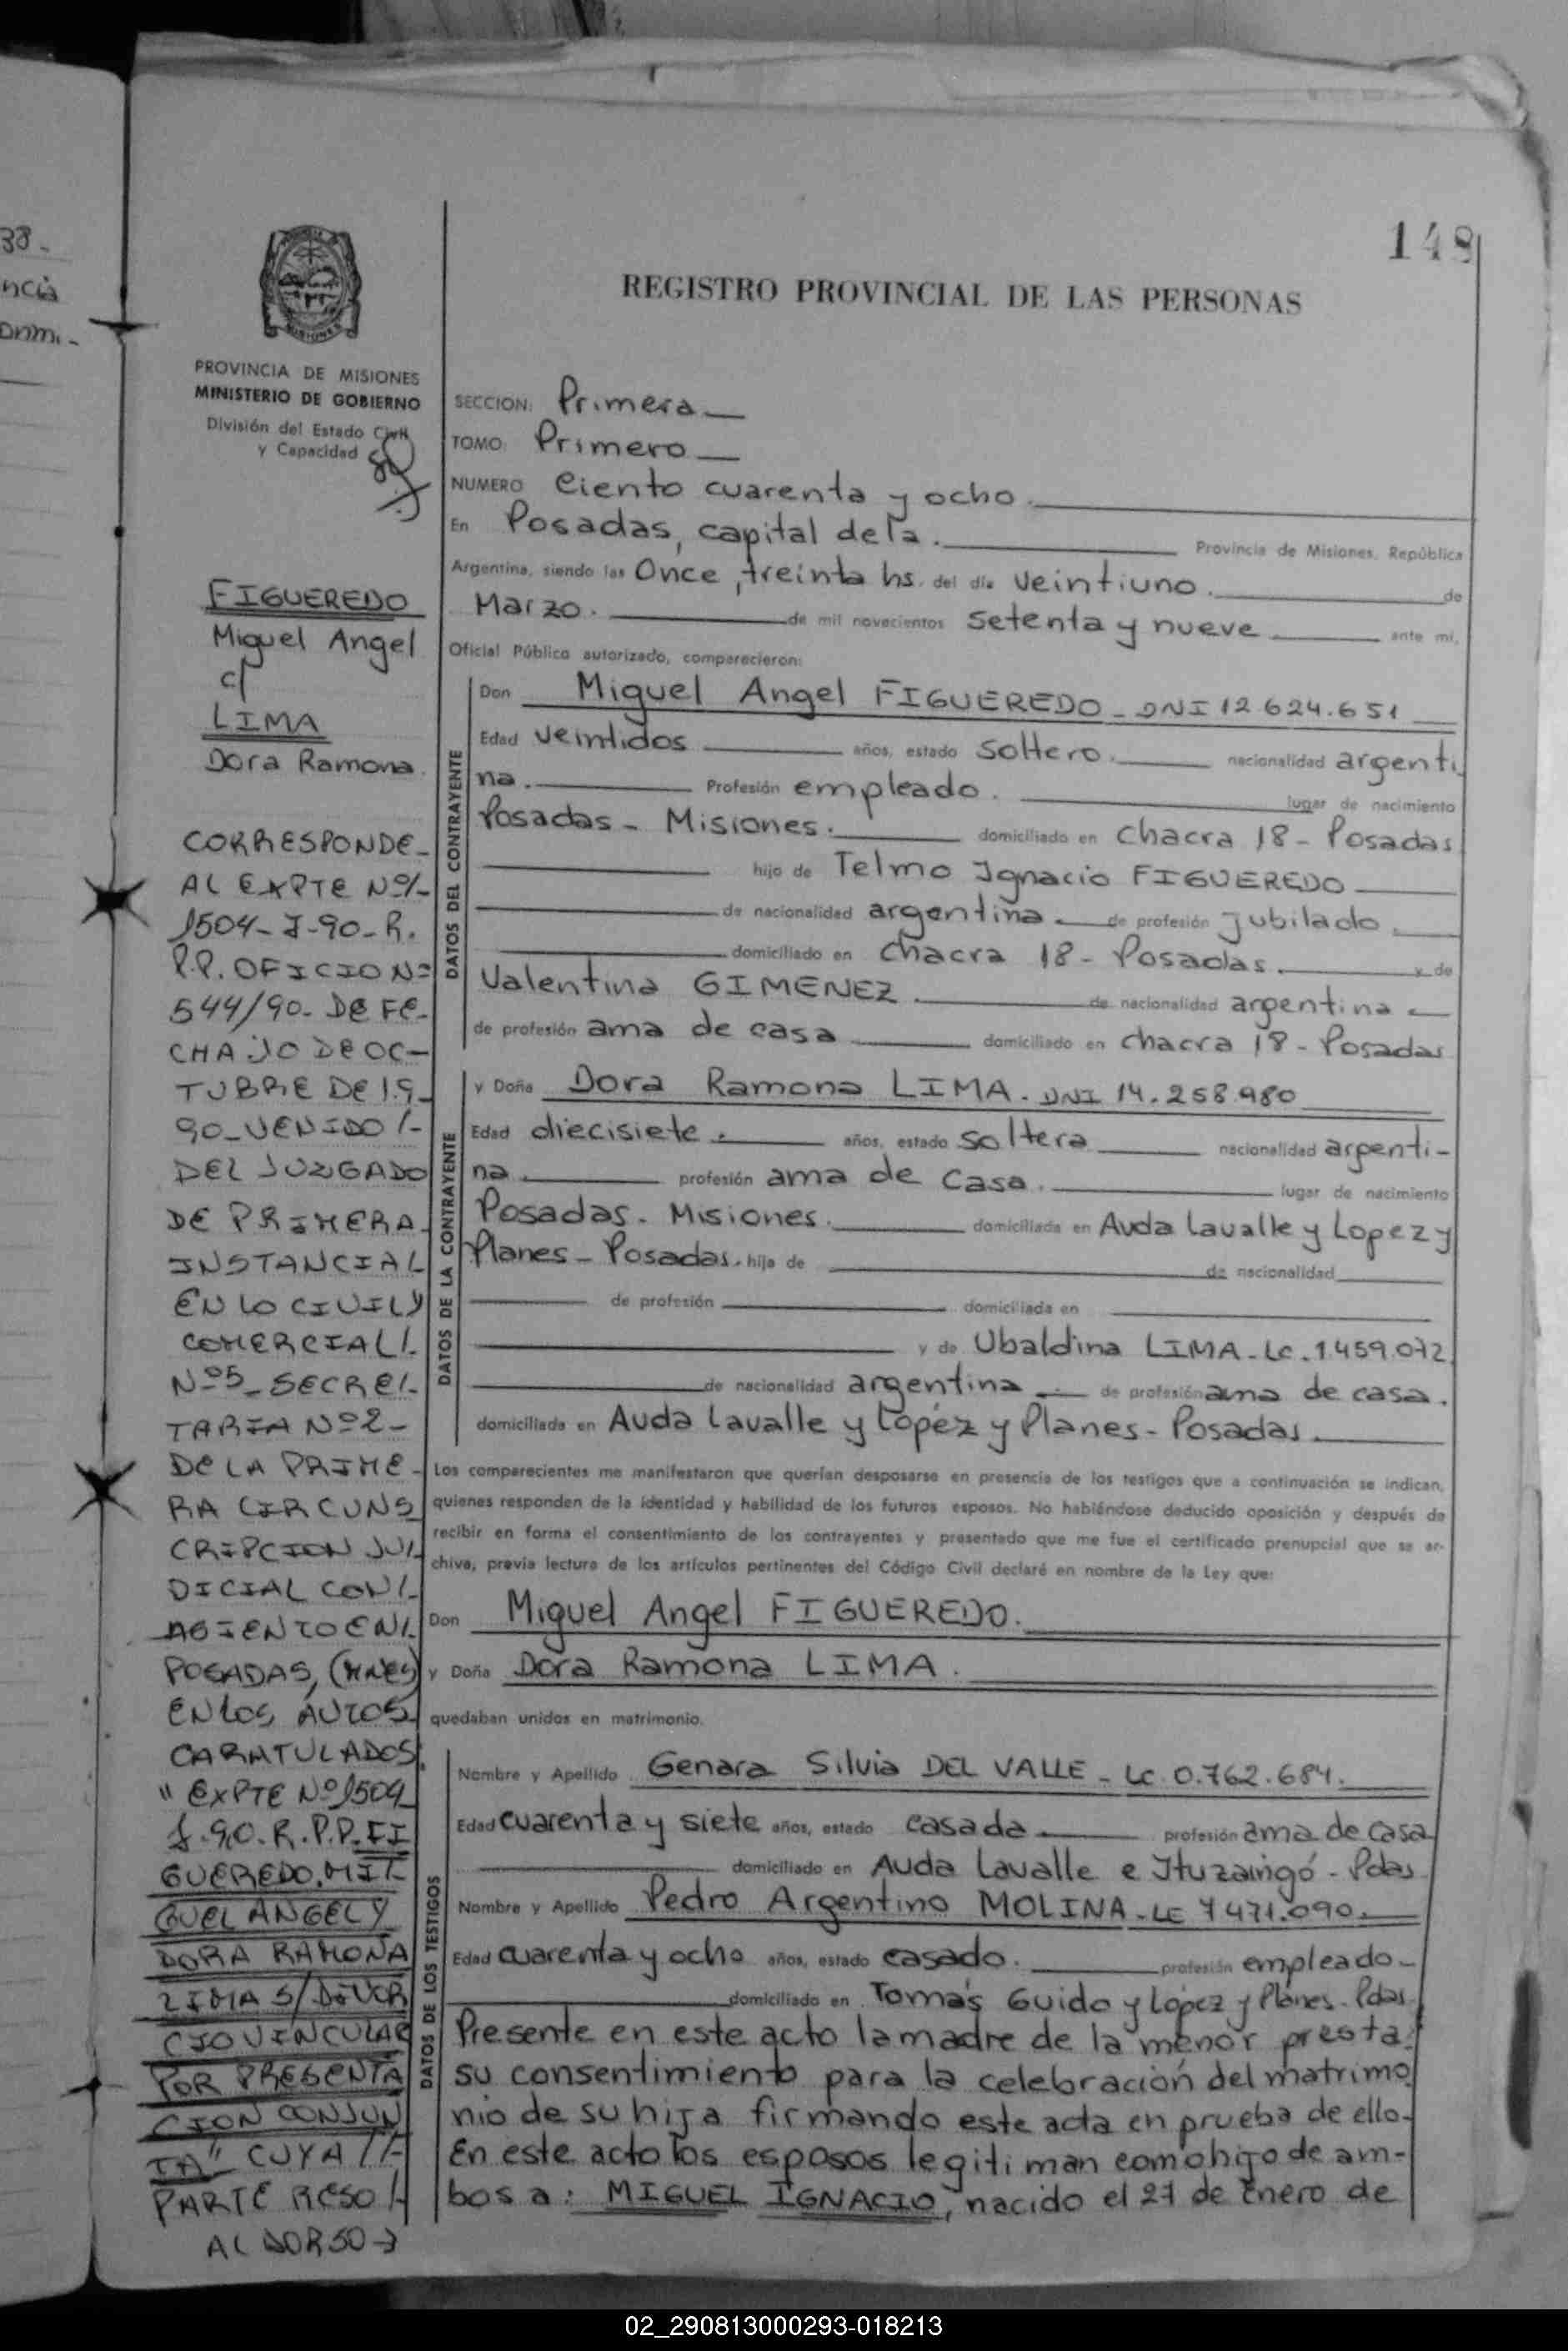 38-
ncia
148
REGISTRO PROVINCIAL DE LAS PERSONAS
MISIONES
PROVINCIA DE MISIONES
MINISTERIO DE GOBIERNO
División del Estado Civil
y Capacidad
FIGUEREDO
Miguel Angel
c/
LIMA
Dora Ramona.
CORRESPONDE-
AL EXPTE Nº/-
1504-J-90-R.
P.P. OFICIO Nº
544/90- DE FE-
CHA 10 DE OC-
TUBRE DE 19-
90-VENIDO/-
DEL JUZGADO
DE PRIMERA-
INSTANCIAL
EN LO CIVIL Y
COMERCIAL/.
Nº5-SECRE/-
TARIA Nº2-
DE LA PRIME-
RA CIRCUNS
CRIPCION JU/-
DICIAL CON/-
ASIENTO EN/.
POSADAS, (MNES)
EN LOS AUTOS
CARATULADOS:
"EXPTE Nº1504
J.90.R.P.P.FI
GUEREDO, MI-
GUEL ANGEL Y
DORA RAMONA
LIMA S/DIVOR
CIO VINCULAR
POR PRESENTA
CION CONJUN
TA" CUYA //-
PARTE RESO/-
AL DORSO →
SECCION: Primera
TOMO: Primero
NUMERO Ciento cuarenta y ocho.
En Posadas, capital de la. Provincia de Misiones, República
Argentina, siendo las Once, treinta hs. del día veintiuno. de
Marzo. de mil novecientos setenta y nueve ante mí,
Oficial Público autorizado, comparecieron:
DATOS DEL CONTRAYENTE
Don Miguel Angel FIGUEREDO - DNI 12.624.651
Edad veintidos años, estado soltero. nacionalidad argenti
na. Profesión empleado. lugar de nacimiento
Posadas - Misiones. domiciliado en Chacra 18 - Posadas
hijo de Telmo Ignacio FIGUEREDO
de nacionalidad argentina. de profesión jubilado
domiciliado en Chacra 18 - Posadas. y de
Valentina GIMENEZ de nacionalidad argentina
de profesión ama de casa domiciliado en chacra 18 - Posadas
DATOS DE LA CONTRAYENTE
y Doña Dora Ramona LIMA. DNI 14.258.980
Edad diecisiete. años, estado soltera nacionalidad argenti-
na profesión ama de casa. lugar de nacimiento
Posadas. Misiones. domiciliada en Avda Lavalle y Lopez y
Planes - Posadas. hija de de nacionalidad
de profesión domiciliada en
y de Ubaldina LIMA - LC. 1.459.072
de nacionalidad argentina de profesión ama de casa.
domiciliada en Avda Lavalle y López y Planes - Posadas.
Los comparecientes me manifestaron que querían desposarse en presencia de los testigos que a continuación se indican,
quienes responden de la identidad y habilidad de los futuros esposos. No habiéndose deducido oposición y después de
recibir en forma el consentimiento de los contrayentes y presentado que me fue el certificado prenupcial que se ar-
chiva, previa lectura de los artículos pertinentes del Código Civil declaré en nombre de la Ley que:
Don Miguel Angel FIGUEREDO.
y Doña Dora Ramona LIMA.
quedaban unidos en matrimonio.
DATOS DE LOS TESTIGOS
Nombre y Apellido Genara Silvia DEL VALLE - LC. 0.762.684.
Edad cuarenta y siete años, estado casada profesión ama de casa
domiciliado en Avda Lavalle e Ituzaingó - Pdas.
Nombre y Apellido Pedro Argentino MOLINA - LE 7 471.090.
Edad cuarenta y ocho años, estado casado. profesión empleado-
domiciliado en Tomás Guido y López y Planes. Pdas.
Presente en este acto la madre de la menor presta
su consentimiento para la celebración del matrimo
nio de su hija firmando este acta en prueba de ello.
En este acto los esposos legitiman como hijo de am-
bos a: MIGUEL IGNACIO, nacido el 27 de Enero de
02_290813000293-018213